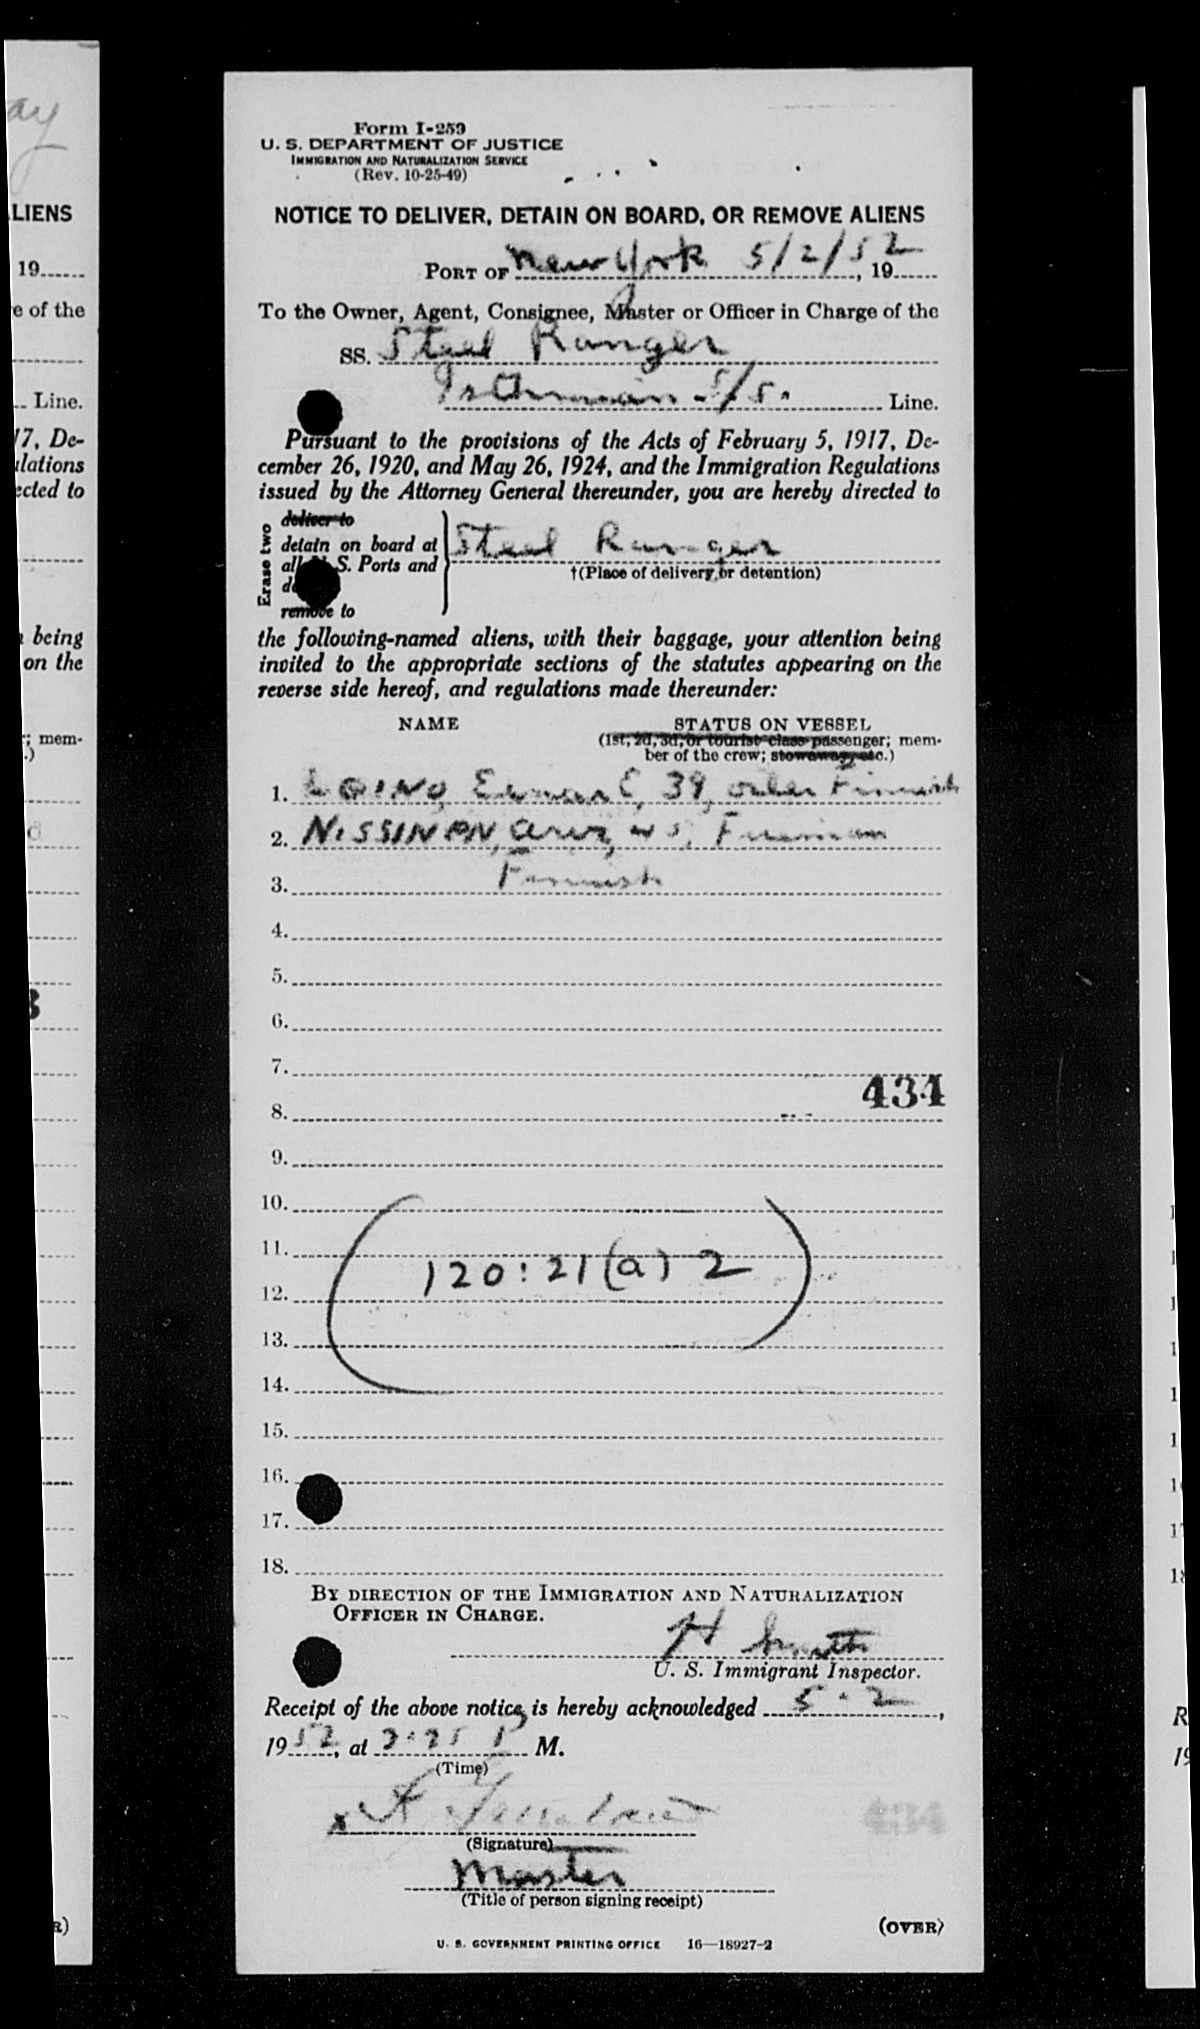 Form I-259
U. S. DEPARTMENT OF JUSTICE
IMMIGRATION AND NATURALIZATION SERVICE
(Rev. 10-25-49)
NOTICE TO DELIVER, DETAIN ON BOARD, OR REMOVE ALIENS
PORT OF New York 5/2/52, 19
To the Owner, Agent, Consignee, Master or Officer in Charge of the
SS. Steel Ranger
Isthmian S/S. Line.
Pursuant to the provisions of the Acts of February 5, 1917, De-
cember 26, 1920, and May 26, 1924, and the Immigration Regulations
issued by the Attorney General thereunder, you are hereby directed to
Erase two
deliver to
detain on board at
all U. S. Ports and
remove to
Steel Ranger
†(Place of delivery or detention)
the following-named aliens, with their baggage, your attention being
invited to the appropriate sections of the statutes appearing on the
reverse side hereof, and regulations made thereunder:
NAME STATUS ON VESSEL
(1st, 2d, 3d, or tourist class passenger; mem-
ber of the crew; stowaway, etc.)
1. 39, oiler Finnish
2. NISSINEN, Fireman
3. Finnish
4.
5.
6.
7.
434
8.
9.
10.
11.
120:21(a) 2
12.
13.
14.
15.
16.
17.
18.
BY DIRECTION OF THE IMMIGRATION AND NATURALIZATION
OFFICER IN CHARGE.
H Smith
U. S. Immigrant Inspector.
Receipt of the above notice is hereby acknowledged 5-2,
1952, at 2:25 P M.
(Time)
x
434
(Signature)
Master
(Title of person signing receipt)
(OVER)
U. S. GOVERNMENT PRINTING OFFICE 16—18927-2